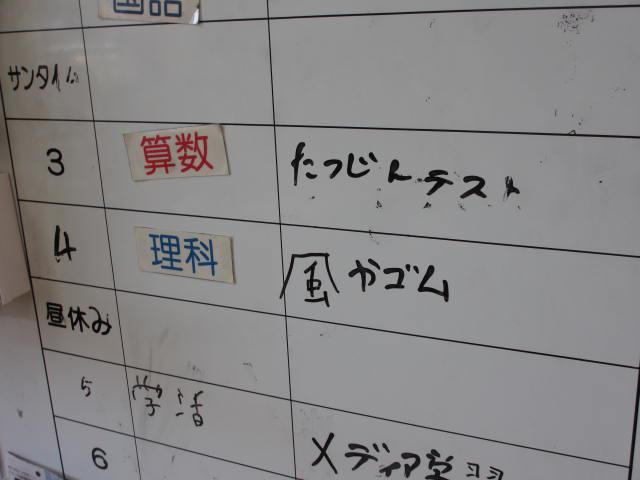 国語
サンタイム
3 算数 たつじんテスト
4 理科 風かゴム
昼休み
5 学活
6 メディア学習